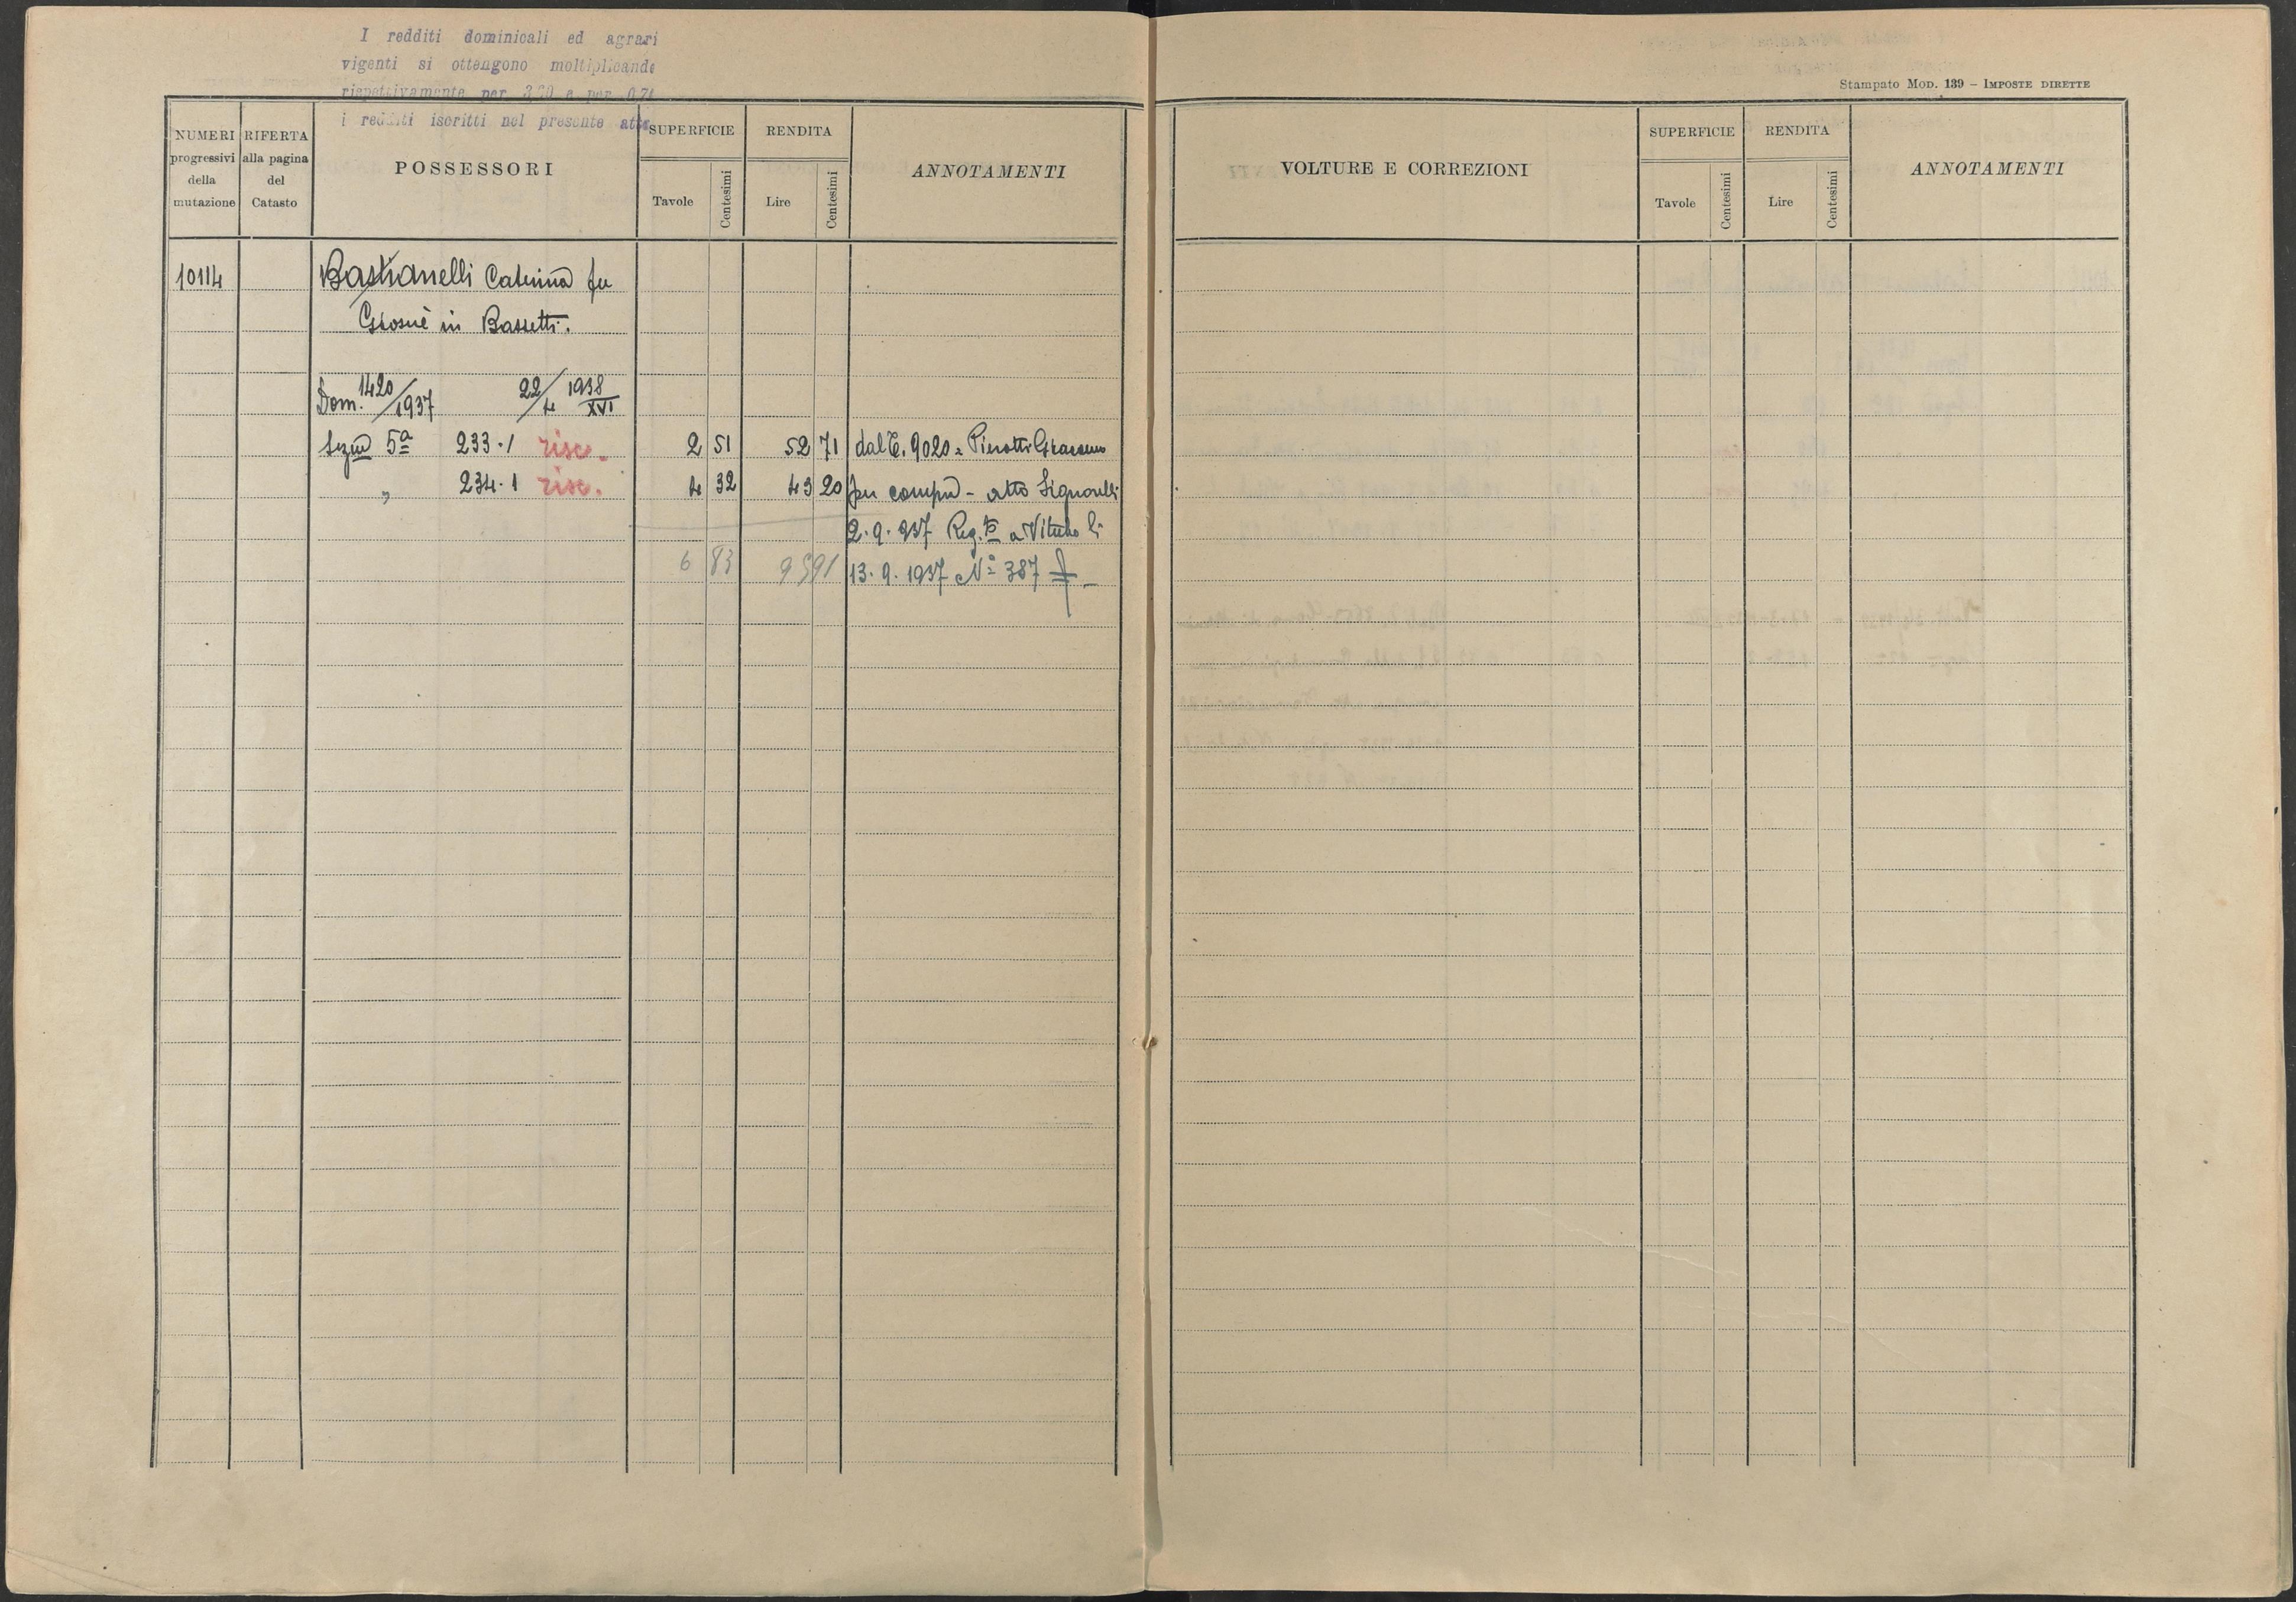 I redditi dominicali ed agrari
vigenti si ottengono moltiplicando
rispettivamente per 3.20 e per 0.74
i redditi iscritti nel presente atto
Stampato MOD. 139 - IMPOSTE DIRETTE
NUMERI progressivi della mutazione
RIFERTA alla pagina del Catasto
POSSESSORI
SUPERFICIE
Tavole
Centesimi
RENDITA
Lire
Centesimi
ANNOTAMENTI
10114 Bastianelli Caterina fu
Giosuè in Bassetti.
Dom. 1420/1937 22/4 1938 XVI
Sezne 5ª 233.1 risc. 2 51 52 71 dal C. 9020 = Pierotti Giacomo
„ 234.1 risc. 4 32 43 20 per compra - atto Signorelli
2.9.937 Reg.to a Viterbo li
6 83 95 91 13.9.1937 Nº 387
VOLTURE E CORREZIONI
SUPERFICIE
Tavole
Centesimi
RENDITA
Lire
Centesimi
ANNOTAMENTI